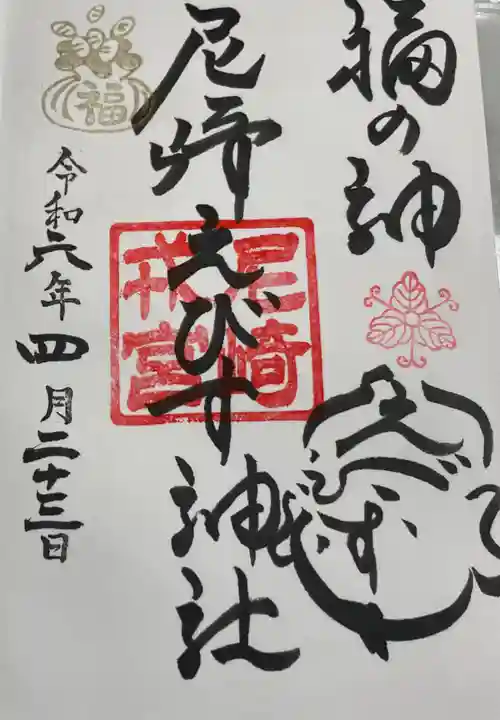 福の神
えびす
尼崎えびす神社
尼崎
戎宮
福
令和六年四月二十三日